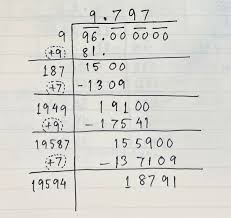 9.797
9 96.00 00 00
+9 81.
187 15 00
+7 -13 09
1949 19100
+9 -17541
19587 155900
+7 -137109
19594 18791